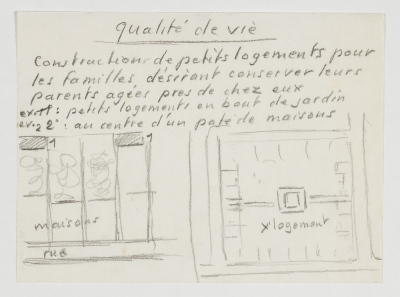 qualité de vie
Constructions de petits logements pour
les familles désirant conserver leurs
parents agées pres de chez eux
ex. 1: petits logements en bout de jardin
ex. 2 2°: au centre d'un paté de maisons
1
1
maisons
rue
x logement